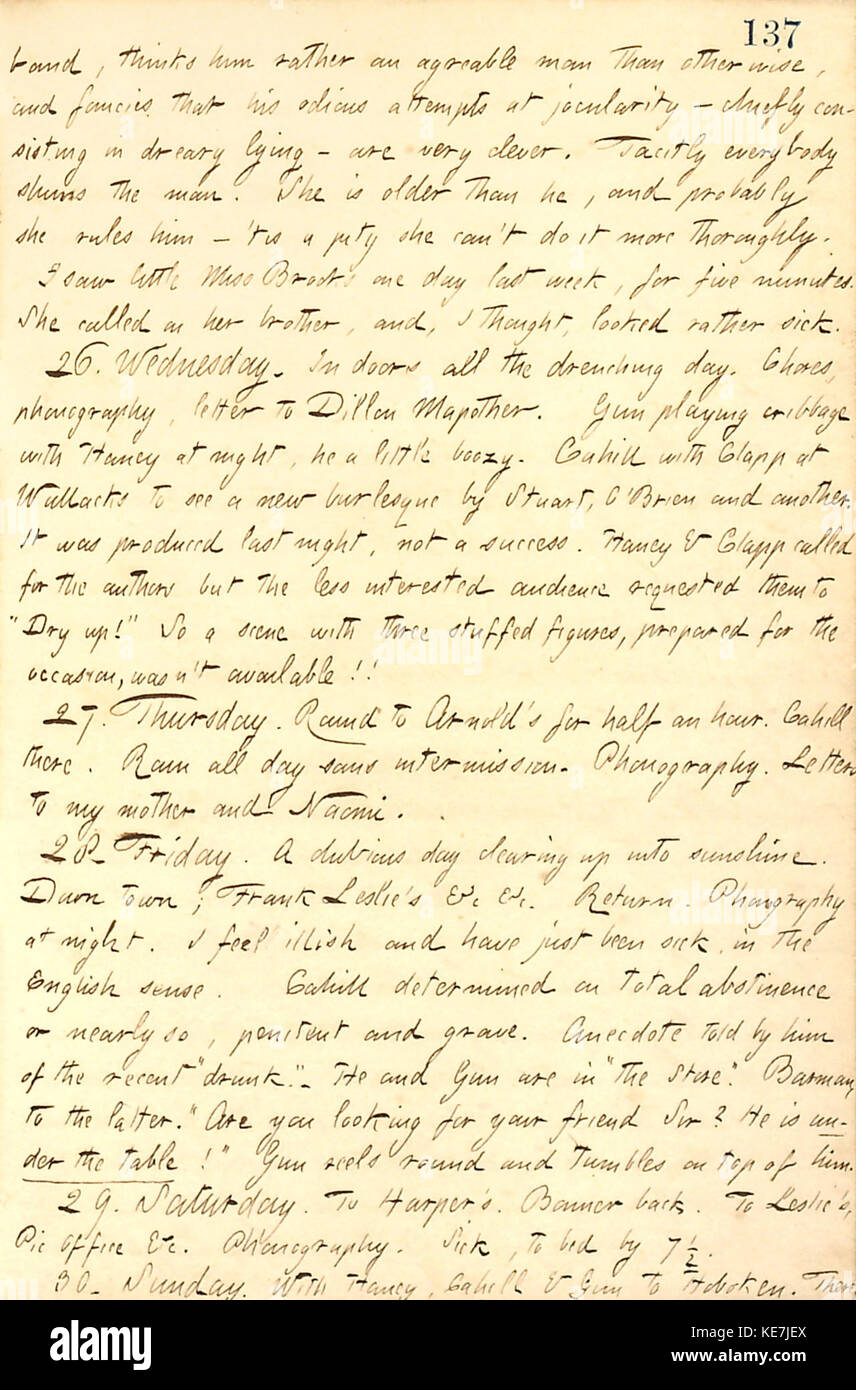 137
band, thinks him rather an agreable man than otherwise,
and fancies that his odious attempts at jocularity — chiefly con-
sisting in dreary lying — are very clever. Tacitly everybody
shuns the man. She is older than he, and probably
she rules him — 'tis a pity she can't do it more thoroughly.
I saw little Miss Brooks one day last week, for five minutes.
She called on her brother, and, I thought, looked rather sick.
26. Wednesday. In doors all the drenching day. Chores,
phonography, letter to Dillon Mapother. Gun playing cribbage
with Haney at night, he a little boozy. Cahill with Clapp at
Wallacks to see a new burlesque by Stuart, O'Brien and another.
It was produced last night, not a success. Haney & Clapp called
for the authors but the less interested audience requested them to
"Dry up!" So a scene with three stuffed figures, prepared for the
occasion, wasn't available!!
27. Thursday. Round to Arnold's for half an hour. Cahill
there. Rain all day sans intermission. Phonography. Letters
to my mother and Naomi.
28. Friday. A dubious day clearing up into sunshine.
Down town; Frank Leslie's &c &c. Return. Phonography
at night. I feel illish and have just been sick, in the
English sense. Cahill determined on total abstinence
or nearly so, penitent and grave. Anecdote told by him
of the recent "drunk". He and Gun are in "the Store". Barman,
to the latter. "Are you looking for your friend Sir? He is un-
der the table!" Gun reels round and tumbles on top of him.
29. Saturday. To Harper's. Banner back. To Leslie's,
Pic Office &c. Phonography. Sick, to bed by 7 ½.
30. Sunday. With Haney, Cahill & Gun to Hoboken. There
alamy
Image ID: KE7JEX
www.alamy.com